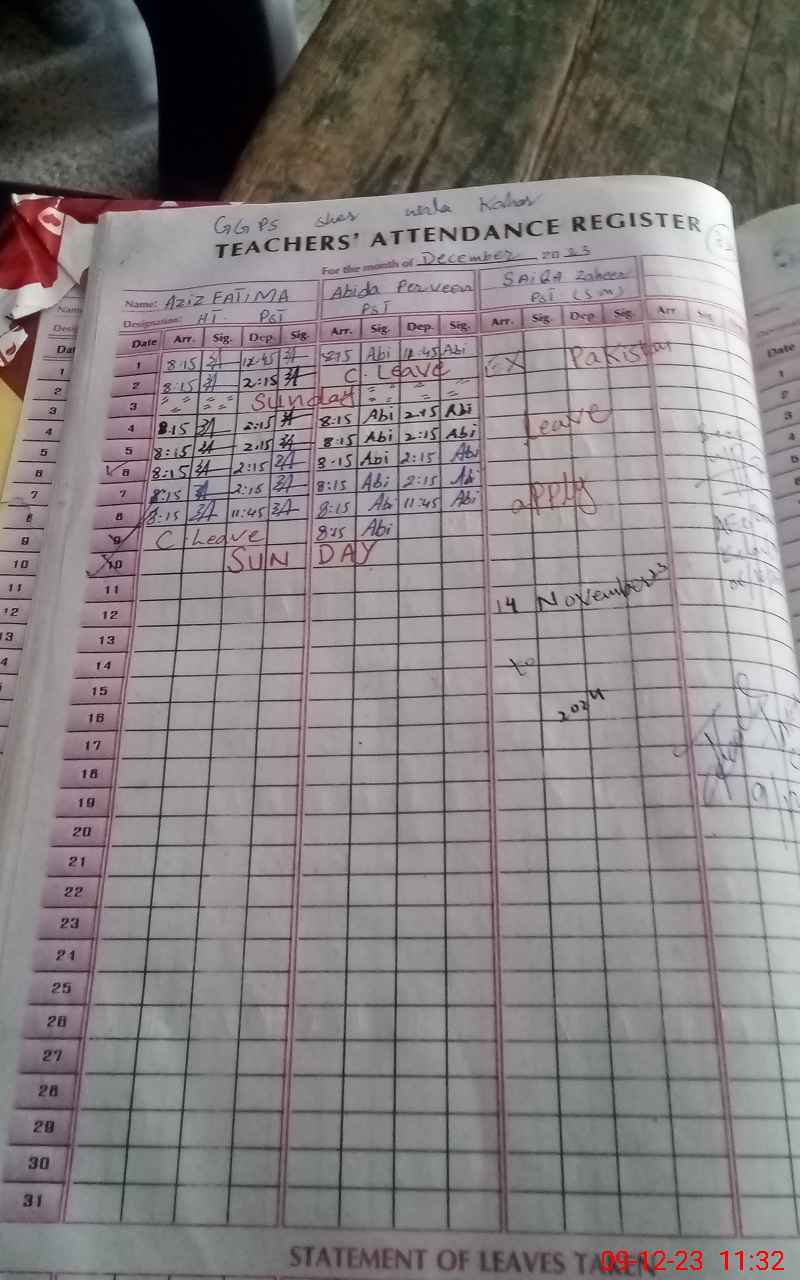 GGPS sher
TEACHERS' ATTENDANCE REGISTER
For the month of December 2023
Name: AZIZ FATIMA Abida Perveen SAIQA Zaheer
Designation: HT. PST PST PST (S m)
Date Arr. Sig. Dep. Sig. Arr. Sig. Dep. Sig. Arr. Sig. Dep. Sig. Arr Sig.
1 8:15 12:45 8:15 Abi 12:45 Abi EX Pakistan
2 8:15 2:15 C. Leave
3 " " " " Sunday " " " "
4 8:15 2:15 8:15 Abi 2:15 Abi Leave
5 8:15 2:15 8:15 Abi 2:15 Abi
6 8:15 2:15 8:15 Abi 2:15 Abi
7 8:15 2:15 8:15 Abi 2:15 Abi apply
8 8:15 11:45 8:15 Abi 11:45 Abi
9 C. Leave 8:15 Abi
10 SUN DAY
11 14 November 23
12
13
14 to
15
16 2024
17
18
19
20
21
22
23
24
25
26
27
28
29
30
31
STATEMENT OF LEAVES TAKEN
09-12-23 11:32